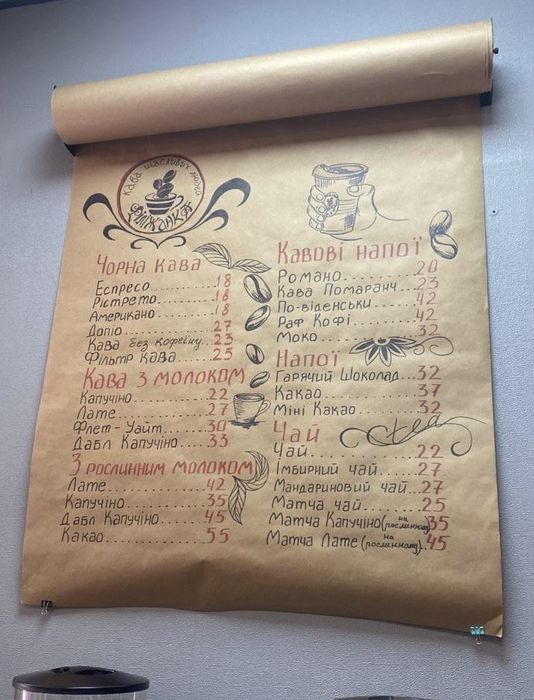 Кава щасливих людей
Філіжанка
Чорна кава
Еспресо.........18
Рістрето.........18
Американо.........18
Допіо.........27
Кава без кофеїну...23
Фільтр кава.....25
Кава з молоком
Капучіно.........22
Лате.........27
Флет-Уайт.....30
Дабл Капучіно.....33
З рослинним молоком
Лате.........42
Капучіно.........35
Дабл Капучіно.....45
Какао.........55
Кавові напої
Романо.........20
Кава Помаранч...23
По-віденськи.....42
Раф Кофі.........42
Моко.........32
Напої
Гарячий Шоколад...32
Какао.........37
Міні Какао.......32
Чай
tea
Чай.........22
Імбирний чай....27
Мандариновий чай...27
Матча чай.....25
Матча Капучіно(на рослинному)35
Матча Лате(на рослинному).45